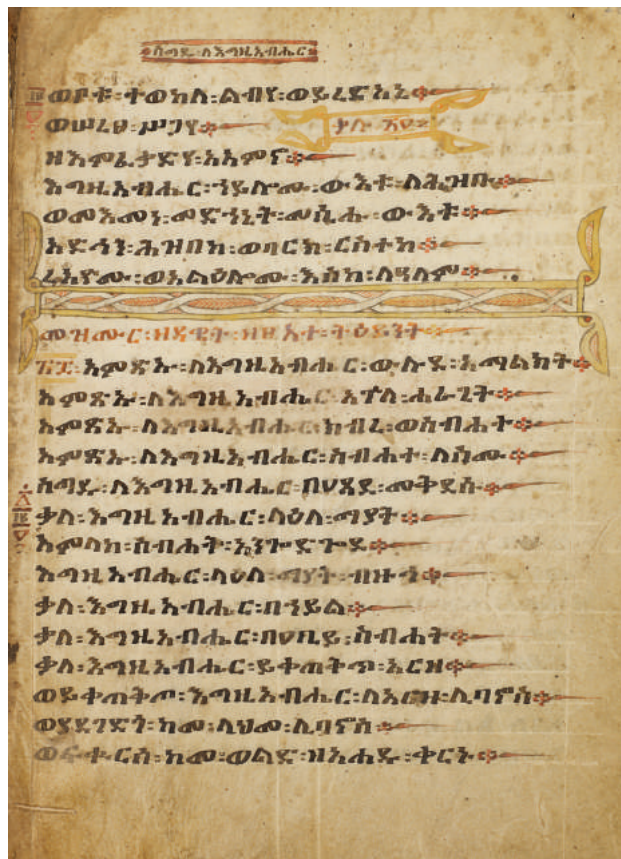 ስግዱ፡ለእግዚአብሔር
ወቦቱ፡ተወከለ፡ልብየ፡ወይረድአኒ፨
ወሠረፀ፡ሥጋየ፨
ዘእምፈቃድየ፡አአምኖ፨
እግዚአብሔር፡ኀይሎሙ፡ውእቱ፡ለሕዝቡ፨
ወመእመነ፡መድኀኒተ፡መሲሑ፡ውእቱ፨
አድኅን፡ሕዝበከ፡ወባርክ፡ርስተከ፨
ረአዮሙ፡ወአልዕሎሙ፡እስከ፡ለዓለም፨
መዝሙር፡ዘዳዊት፡ዘፀአተ፡ትዕይንት
፳፰፡አምጽኡ፡ለእግዚአብሔር፡ውሉደ፡አማልክት፨
አምጽኡ፡ለእግዚአብሔር፡እጐለ፡ሐራጊት፨
አምጽኡ፡ለእግዚአብሔር፡ክብረ፡ወስብሐተ፨
አምጽኡ፡ለእግዚአብሔር፡ስብሐተ፡ለስሙ፨
ስግዱ፡ለእግዚአብሔር፡በዐጸደ፡መቅደሱ፨
ቃለ፡እግዚአብሔር፡ላዕለ፡ማያት፨
አምላከ፡ስብሐት፡አንጐድጐደ፨
እግዚአብሔር፡ላዕለ፡ማያት፡ብዙኅ፨
ቃለ፡እግዚአብሔር፡በኀይል፨
ቃለ፡እግዚአብሔር፡በዐቢይ፡ስብሐት፨
ቃለ፡እግዚአብሔር፡ይቀጠቅጥ፡አርዘ፨
ወይቀጠቅጦ፡እግዚአብሔር፡ለአርዘ፡ሊባኖስ፨
ወያደገድጎ፡ከመ፡ላህመ፡ሊባኖስ፨
ወፍቁርሰ፡ከመ፡ወልድ፡ዘአሐዱ፡ቀርኑ፨